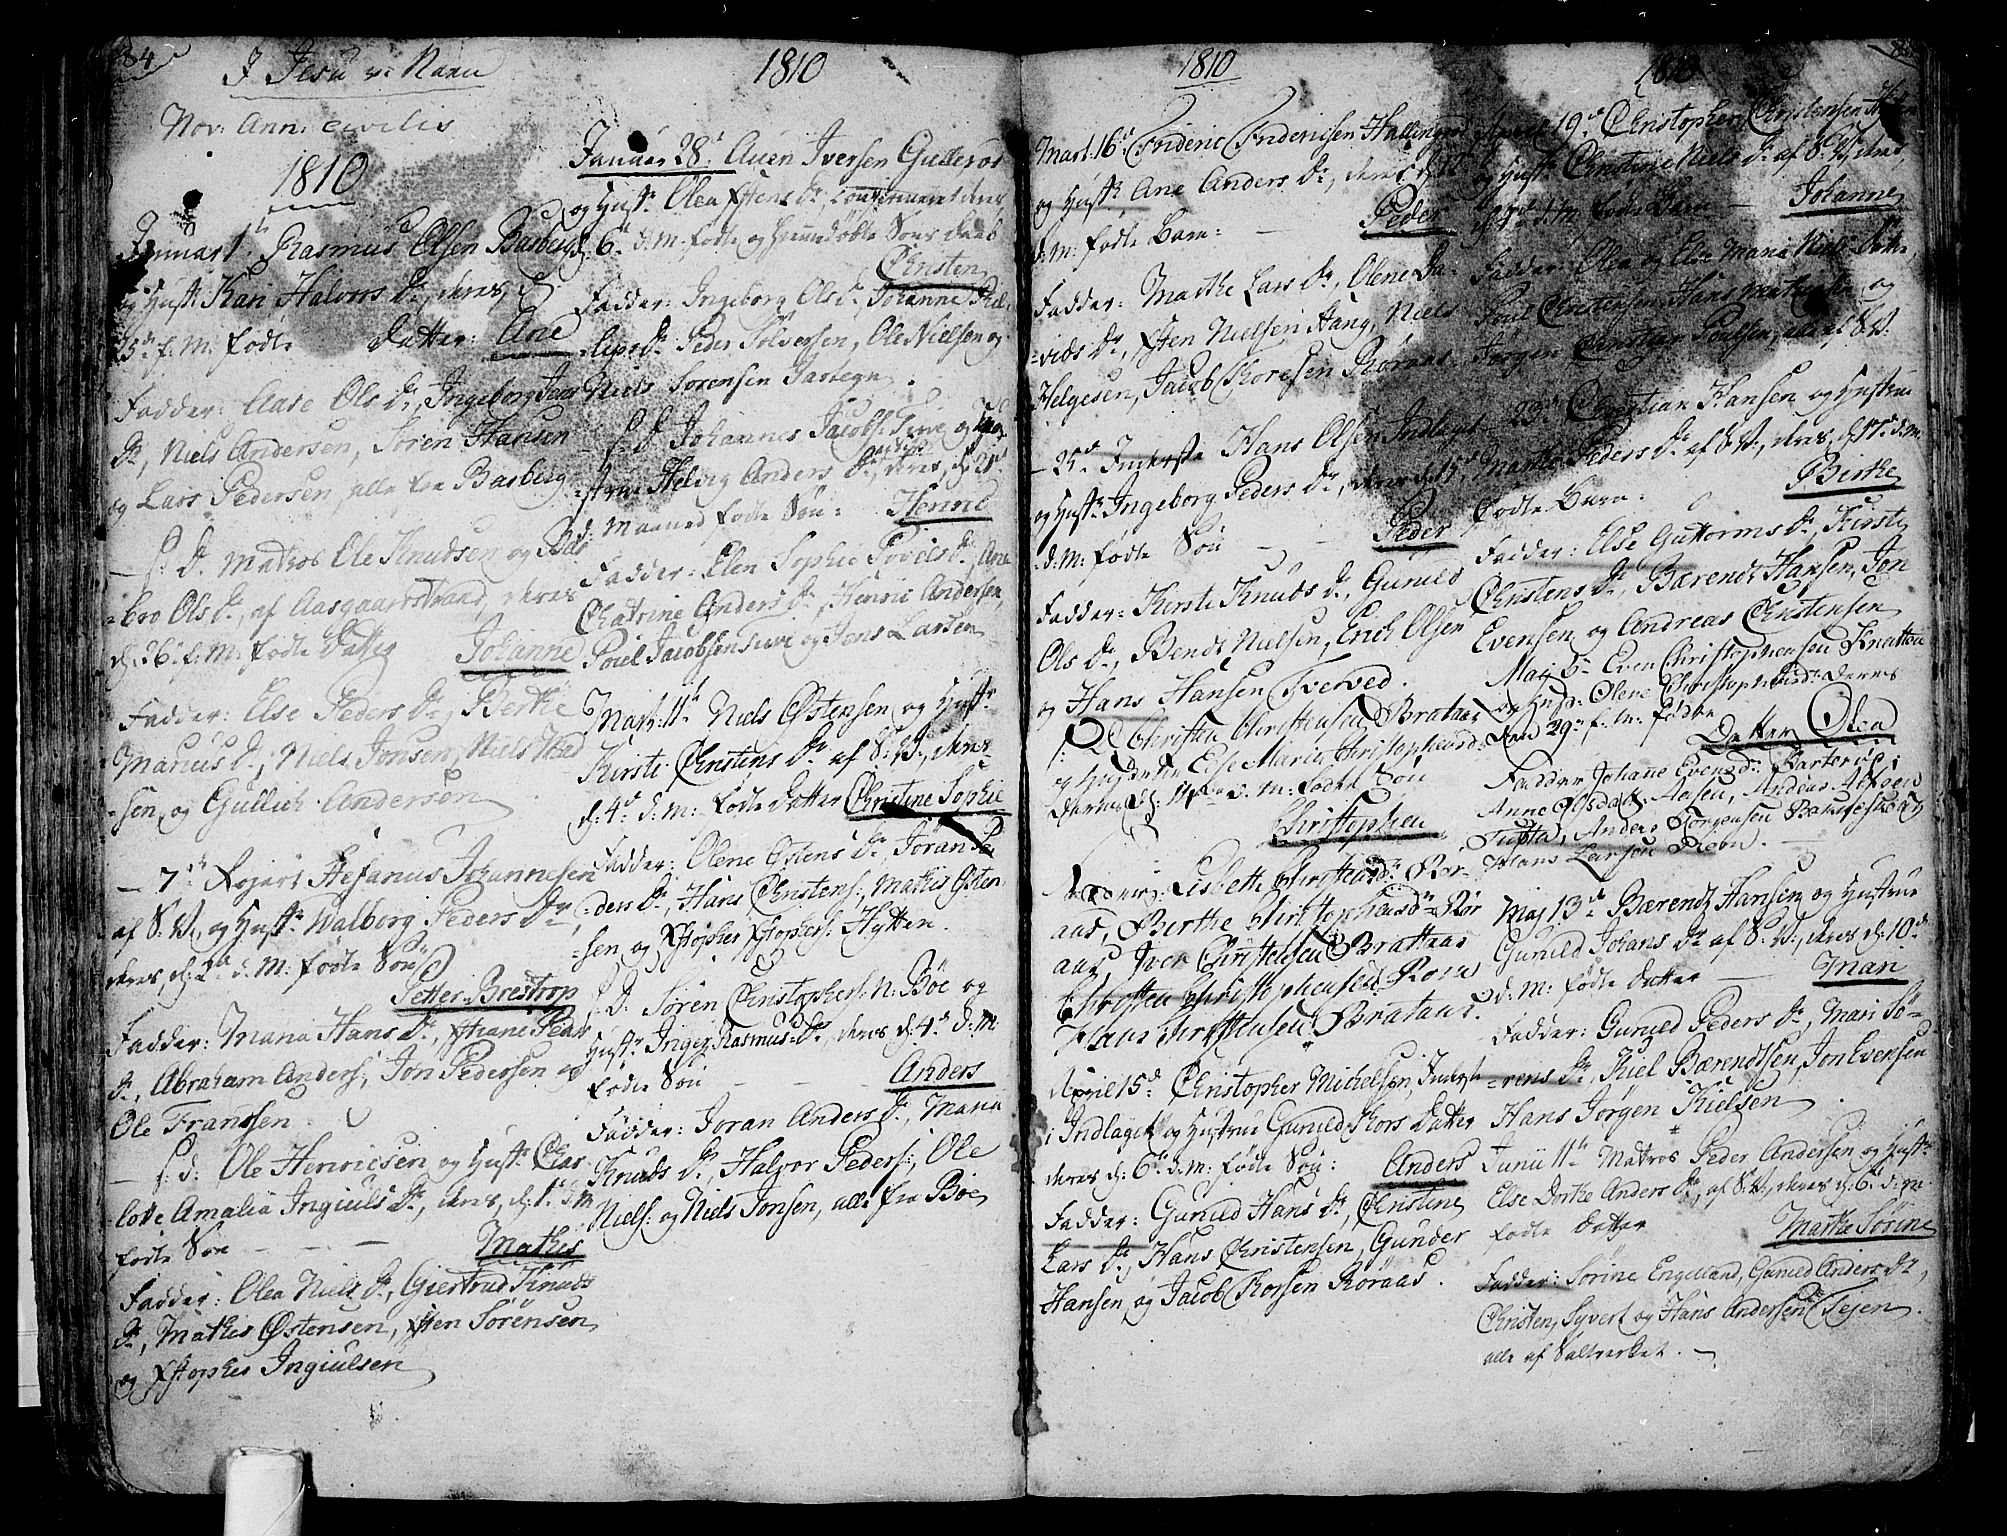 84
I Jesu Navn
Nov: Ann: Civilis
1810
Januar 1. Rasmus Olsen Basberg
og Hustr. Kari Halvors Dr, deres, d.
25de f. M. fødte Datter: Ane
Fadder: Aase Ols Dr, Ingeborg Jens
Dr, Niels Andersen, Sören Hansen
og Lars Pedersen, alle fra Basberg
— S. D. Matros Ole Knudsen og Bol
-bro Ols Dr, af Aasgaardstrand, deres
d. 26. f. M. fødte Datter Johanne
Fadder: Else Peders Dr, Berthe
Marcus Dr, Niels Jonsen, Niels Mad
-sen, og Gullich Andersen
— 7de Stefanus Johannesen
af S. V., og Hustr. Walborg Peders Dr,
deres, d. d. M: fødte Sön
Petter Brestrop
Fadder: Maria Hans Dr, Peders
Dr, Abraham Anders:, Jon Pedersen og
Ole Franssen.
— S: d: Ole Henricsen og Hustr. Char
-lotte Amalia Ingiuls Dr, deres, d. 1. d. M
fødte Sön — — — Mathis
Fadder: Olea Niels Dr, Giertrud Knuds
Dr, Mathis Østensen, Xsten Sörensen
og Xstopher Ingiulsen
1810
Januar 28. Auen Iversen Gulleroe
og Hustr. Olea Xstens Dr, deres
d. 6. d. M: fødte og hiemmedøbte Söns Daab
Christen
Fadder: Ingeborg Ols Dr, Johanne Phil-
-lips Dr, Peder Sölversen, Ole Nielsen og
Niels Sorensen Jarlegn.
— S. D. Johannes Jacobs: Tuve og Hu-
-strue Helvig Anders Dr, deres, d. 21.
Maaned fødte Sön: Henric
Fadder: Elen Sophie Povels Dr, Ane
Chatrine Anders Dr, Henric Andersen,
Poul Jacobsen Tuve og Jens Larsen
Mart. 11te Niels Østensen og Hustr.
Kirsti Christens Dr af S. V., deres
d. 4de d. M: fødte Datter Christine Sophie
Fadder: Olene Østens Dr, Jöran Pe
-ders Dr, Hans Christens:, Mathis Østen-
-sen og Xstopher Xstophers: Hytten.
S. D. Sören Christophers: N: Böe og
Hustr. Inger Rasmus Dr, deres d. 4de d. M.
fødte Sön — — — Anders
Fadder: Joran Anders Dr, Maria
Knuds Dr, Halvor Peders:, Ole
Niels: og Niels Jonsen, alle fra Böe
1810
Mart. 16. Frideric Fridericsen
og Hustr. Ane Anders Dr, deres
d. M: fødte Barn: — Peder
Fadder: Marthe Lars Dr, Olene Da-
-vids Dr, Xsten Nielsen Haug, Niels
Helgesen, Jacob Korsesen Röraas
— 25. Inderste Hans Olsen Indlaget
og Hustr. Ingeborg Peders Dr, deres d. 15.
d. M: fødte Sön — — Peder
Fadder: Kirsti Knuds Dr, Gunild
Ols Dr, Bendt Nielsen, Erich Olsen
og Hans Hansen Tverved.
S: D Christen Christensen Brataas
og Hustr. Else Maria Christophersdr:
deres d: d. M: fødte Sön
Christophen
Fadder: Lisbeth Christensdr: Rör-
aas, Berthe Christophersdr: Rör
aas, Iver Christensen Brattaas
Christen Christophensen
Hans Christensen Brataas.
April 15. Christopher Michelsen, Inderst
i Indlaget og Hustrue Gunild Kors Datter
deres d. 6. d. M: fødte Sön: Anders
Fadder: Gunild Hans Dr, Christine
Lars Dr, Hans Christensen, Gunder
Hansen, og Jacob Korsen Röraas.
1810
April 19de Christopher Christensen
og Hustr. Christine Niels Dr af S. V., deres
d. M. fødte Barn — Johanne
Fadder: Olea og Else Maria Niels Døttre
Poul Christensen, Hans og
Jörgen Christian Poulsen, alle af S. V.
23de Christian Hansen og Hustrue
Marthe Peders Dr af S. V., deres, d. 17. d. M.
fødte Barn: Birthe
Fadder: Else Guttorms Dr, Kirsti
Christens Dr, Bærendt Hansen, Jon
Evensen og Andreas Christensen
Maj 6. Even Christophensen Knatten
og Hustr. Olene Christophersdr: deres
den 29de f. m. fødte
Datter Olea
Fadder Johanne Evensdr: Barterüd
Anne Olsdatt: Aasen, Anders
Tufta, Anders Torgensen
Hans Larsen
Maj 13de Bærendt Hansen og Hustrue
Gunild Johans Dr af S. V., deres d. 10de
d. M: fødte Datter — Inan
Fadder: Gunild Peders Dr, Mari Sö-
-rens Dr, Kiel Bærendtsen, Jon Evensen
Hans Jörgen Kielsen
Junii 11te Matros Peder Andersen og Hustr.
Else Dorthe Anders Dr, af S. V., deres d. 6. d. M.
fødte Datter Marthe Sörine
Fadder: Sörine Engelland, Gunild Anders Dr,
Christen, Syvert og Hans Andersen Tejen.
alle af Saltverket.